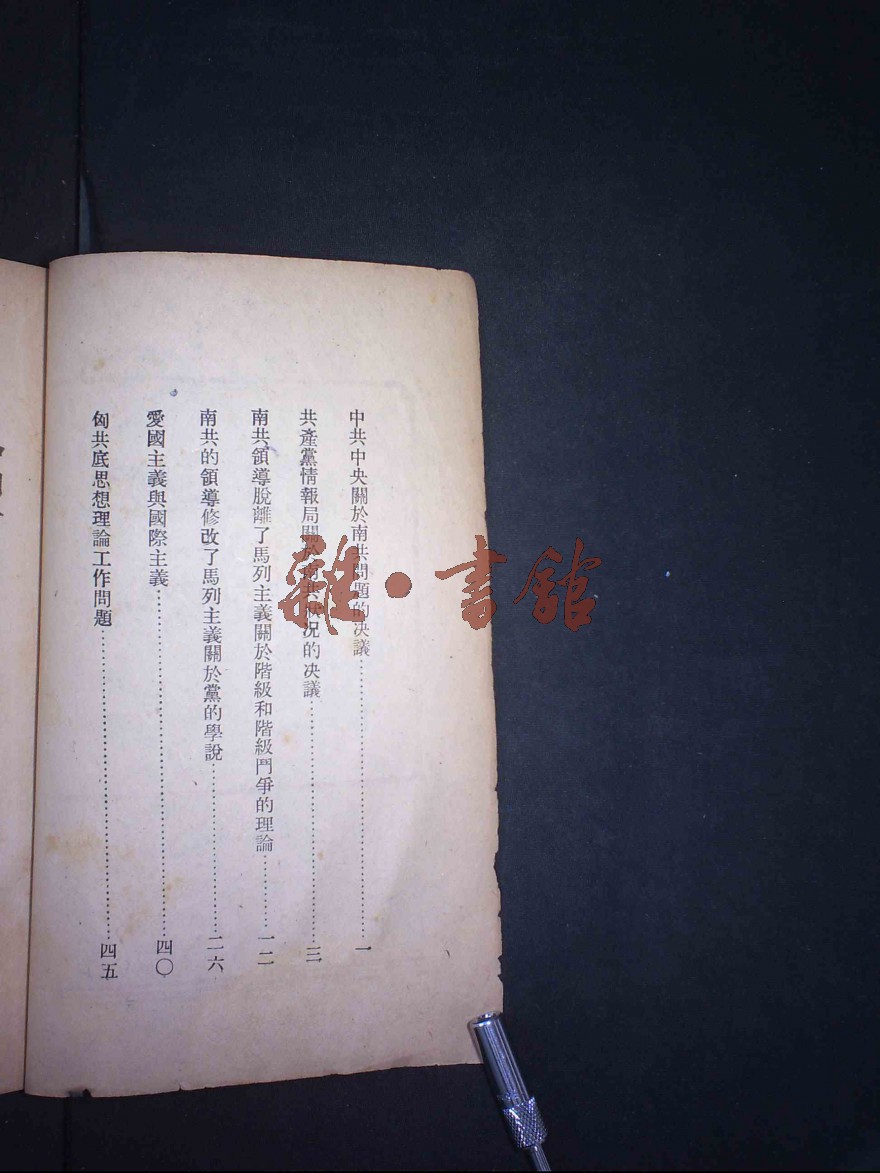 中共中央關於南共問題的决議…………一
共產黨情報局關於南共狀况的决議…………三
南共領導脫離了馬列主義關於階級和階級鬥爭的理論…………一二
南共的領導修改了馬列主義關於黨的學說…………二六
愛國主義與國際主義…………四〇
匈共底思想理論工作問題…………四五
雜·書館